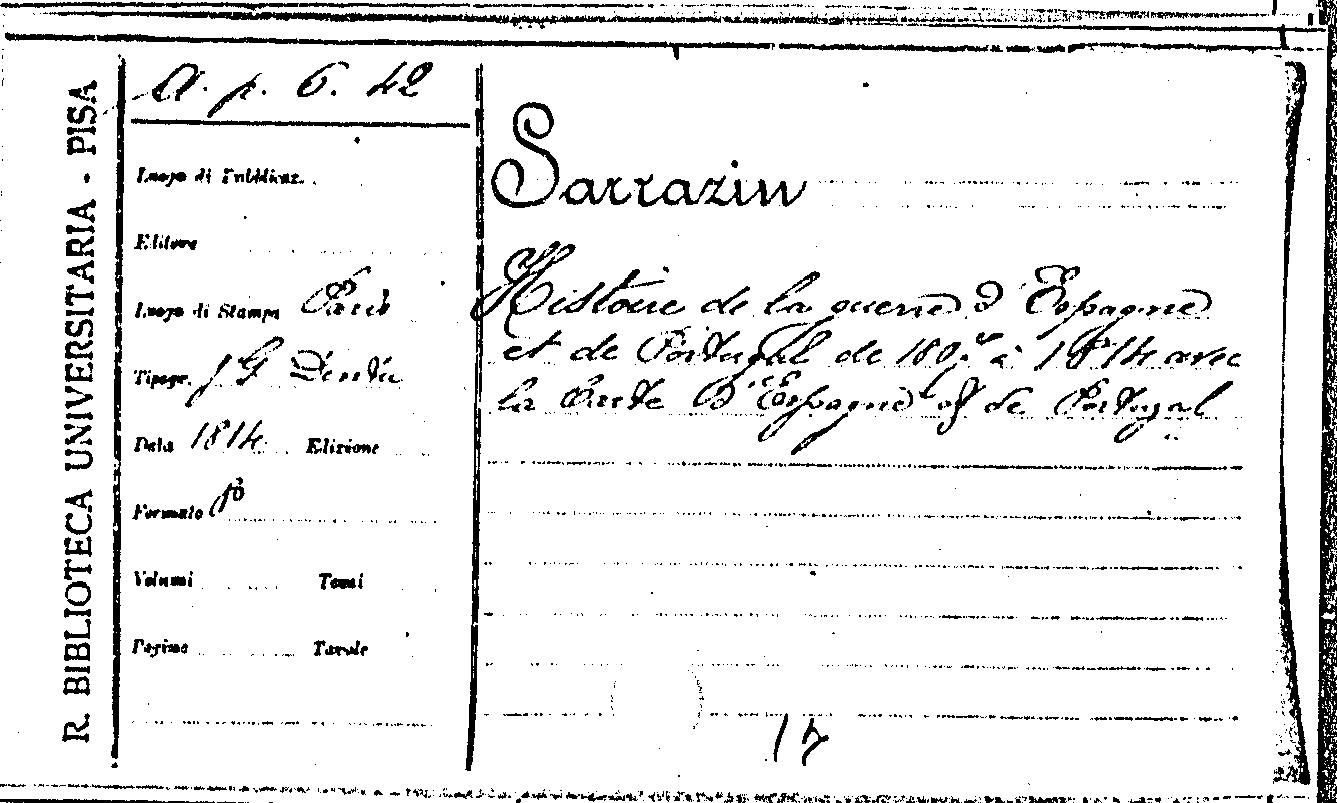 R. BIBLIOTECA UNIVERSITARIA - PISA
A. p. 6. 42
Luogo di Pubblicaz.
Editore
Luogo di Stampa Paris
Tipogr. J G Dentu
Data 1814 Edizione
Formato 8º
Volumi Tomi
Pagine Tavole
Sarrazin
Histoire de la guerre d'Espagne
et de Portugal de 1807 à 1814 avec
la Carte d'Espagne et de Portugal
17